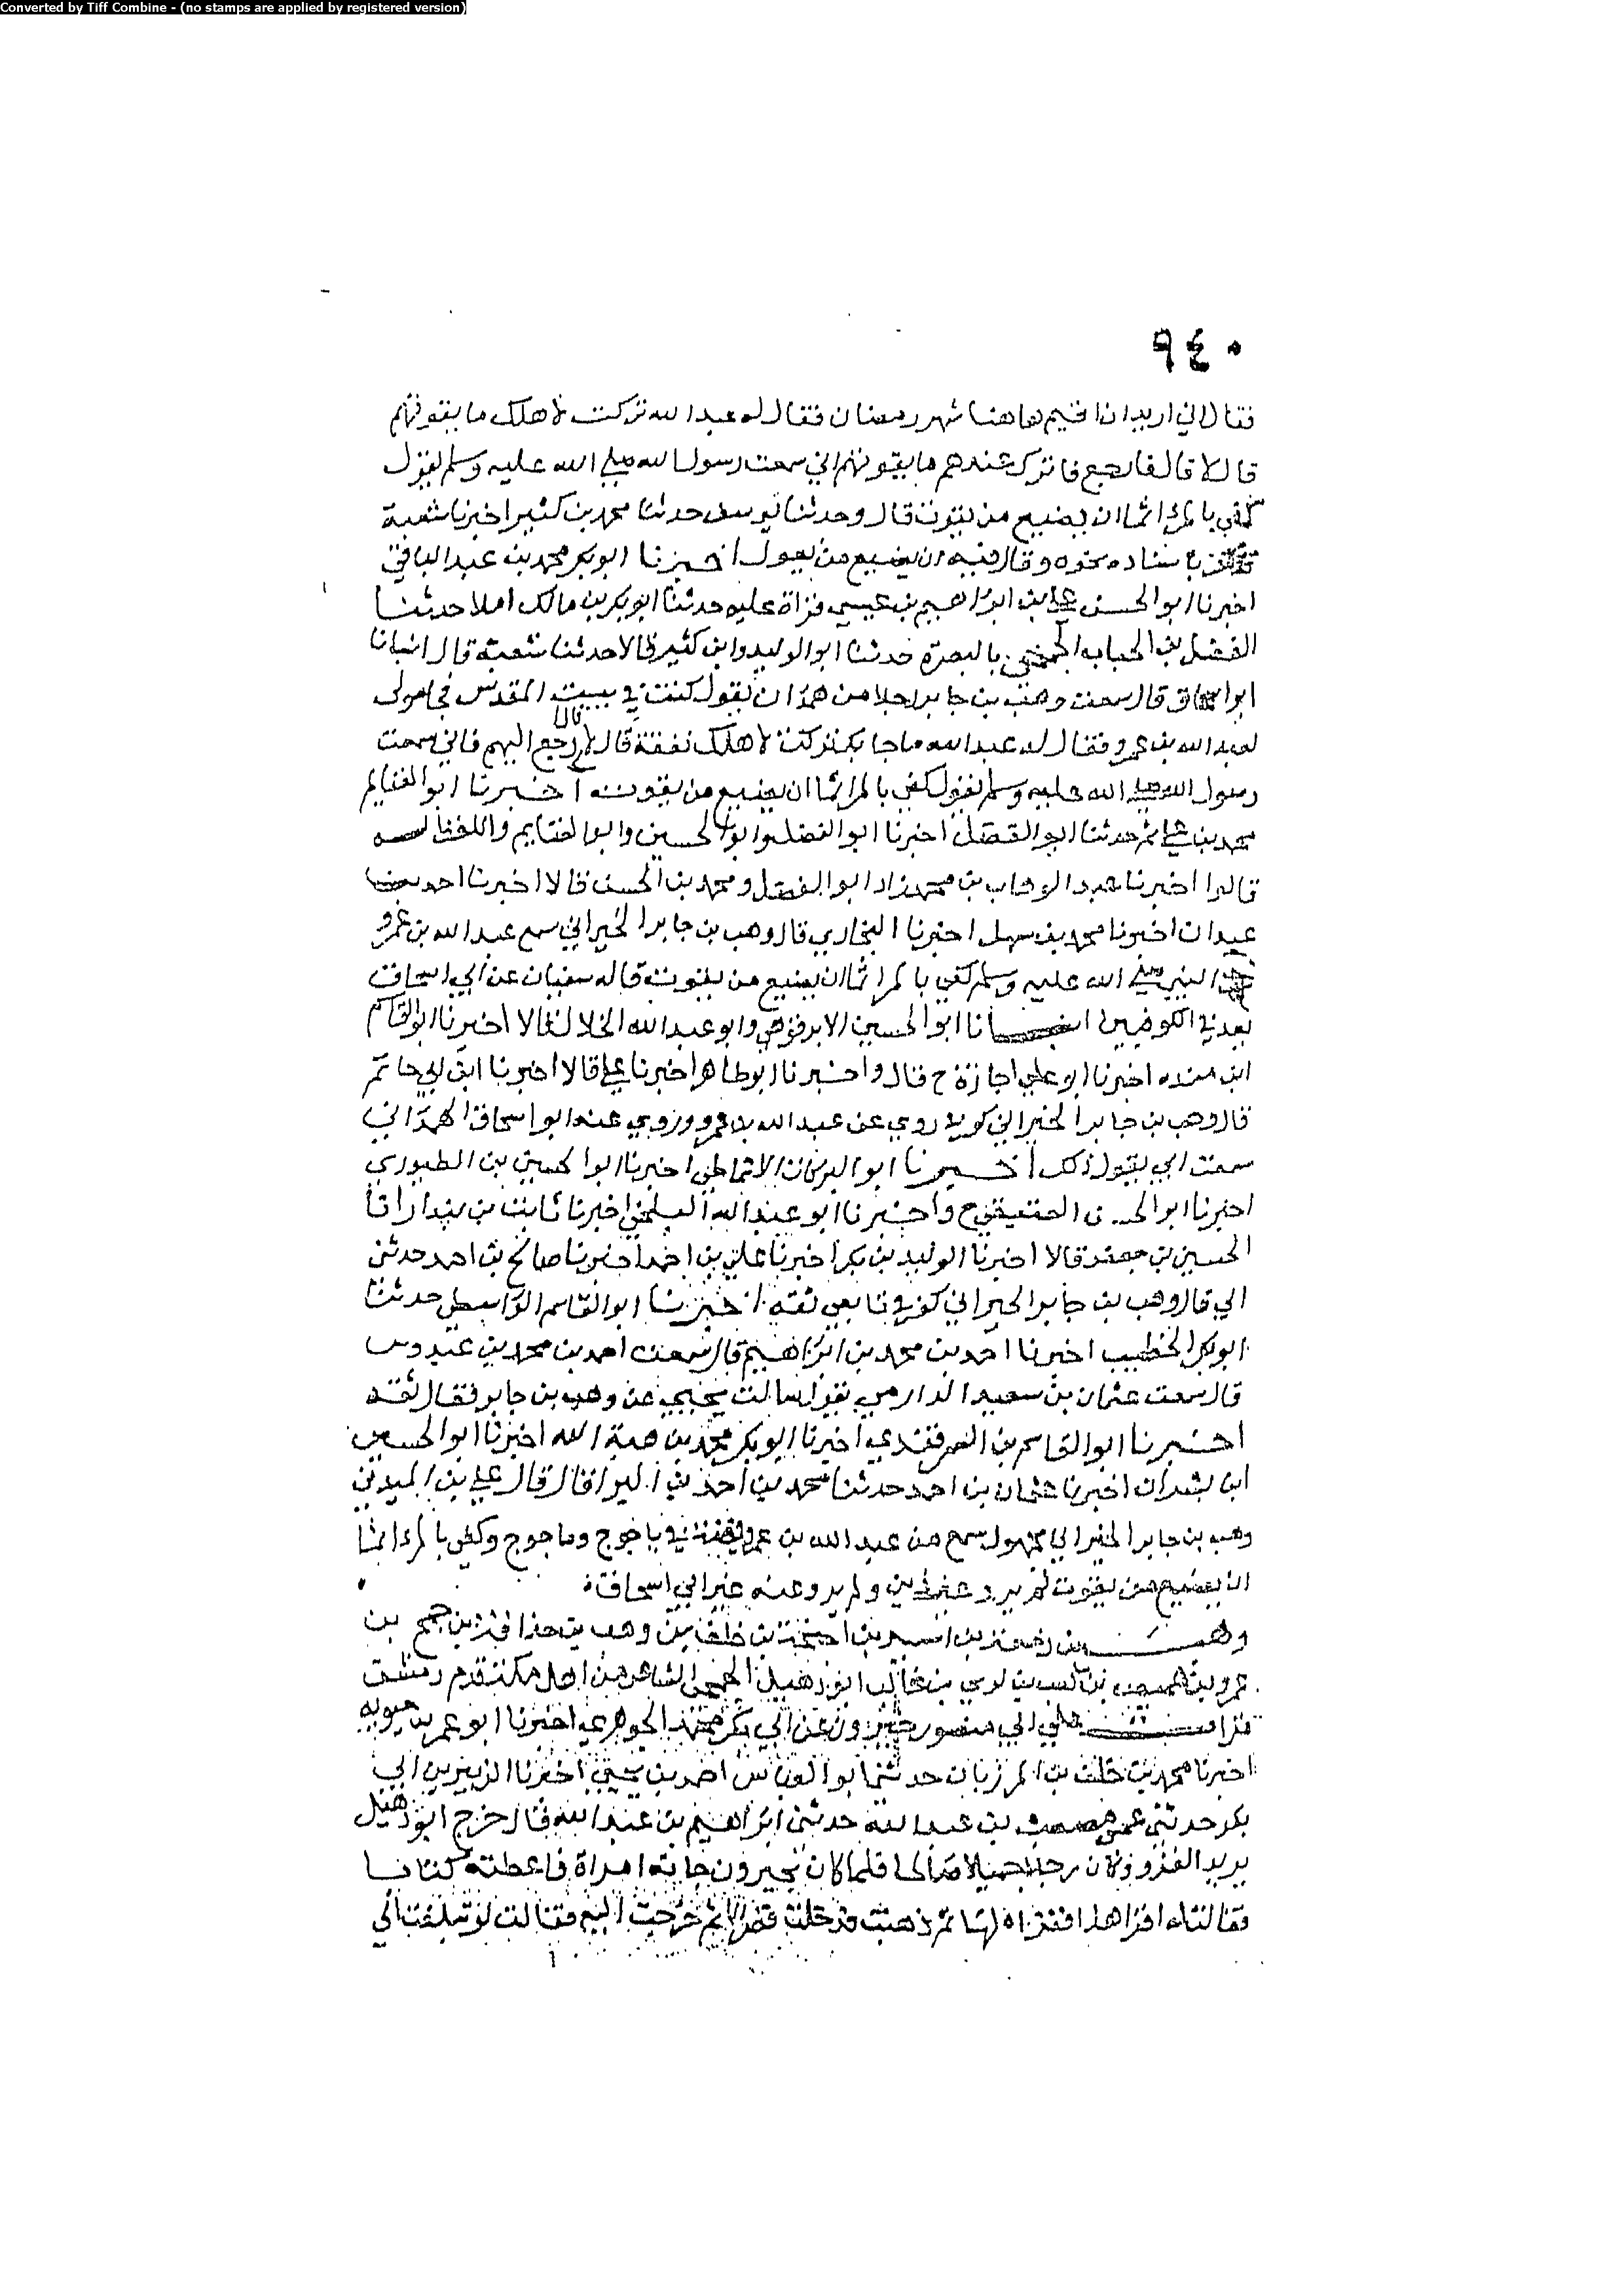 Converted by Tiff Combine - (no stamps are applied by registered version)
٩٤٠
فقال اني اريد ان اقيم هاهنا شهر رمضان فقال له عبد الله تركت لاهلك ما يقوتهم
قال لا قال فارجع فاترك عندهم ما يقوتهم اني سمعت رسول الله صلى الله عليه وسلم يقول
كفى بالمرء اثما ان يضيع من يقوت قال وحدثنا يوسف حدثنا محمد بن كثير اخبرنا شعبة
باسناده نحوه وقال فيه ان يضيع من يعول اخبرنا ابو بكر محمد بن عبد الباقي
اخبرنا ابو الحسن علي بن ابراهيم بن عيسى قراة عليه حدثنا ابو بكر بن مالك املا حدثنا
الفضل بن الحباب الجمحي بالبصرة حدثنا ابو الوليد وابن كثير قالا حدثنا شعبة قال انبانا
ابو اسحاق قال سمعت وهب بن جابر رجلا من همدان يقول كنت في بيت المقدس فجا مولى
لعبد الله بن عمرو فقال له عبد الله ما جا بك تركت لاهلك نفقة قال لا قال ارجع اليهم فاني سمعت
رسول الله صلى الله عليه وسلم يقول كفى بالمرا اثما ان يضيع من يقوت اخبرنا ابو الغنايم
محمد بن علي ثم حدثنا ابو الفضل اخبرنا ابو الفضل وابو الحسين وابو الغنايم واللفظ له
قالوا اخبرنا عبد الوهاب بن محمد زاد ابو الفضل ومحمد بن الحسن قالا اخبرنا احمد بن
عبدان اخبرنا محمد بن سهل اخبرنا البخاري قال وهب بن جابر الخيراني سمع عبد الله بن عمرو
النبي صلى الله عليه وسلم كفى بالمرا اثما ان يضيع من يقوت قاله سفيان عن ابي اسحاق
يعد في الكوفيين انبانا ابو الحسين الابرقوهي وابو عبد الله الخلال قالا اخبرنا ابو القاسم
ابن منده اخبرنا ابو علي اجازة ح قال واخبرنا ابو طاهر اخبرنا علي قالا اخبرنا ابن ابي حاتم
قال وهب بن جابر الخيراني كوفي روي عن عبد الله بن عمرو وروي عنه ابو اسحاق الهمداني
سمعت ابي يقول ذلك اخبرنا ابو البركات الانماطي اخبرنا ابو الحسين بن الطيوري
اخبرنا ابو الحسن العتيقي ح واخبرنا ابو عبد الله البلخي اخبرنا ثابت بن بندار انا
الحسين بن جعفر قالا اخبرنا الوليد بن بكر اخبرنا علي بن احمد اخبرنا صالح بن احمد حدثني
ابي قال وهب بن جابر الخيراني كوفي تابعي ثقة اخبرنا ابو القاسم الواسطي حدثنا
ابو بكر الخطيب اخبرنا احمد بن محمد بن ابراهيم قال سمعت احمد بن محمد بن عبدوس
قال سمعت عثمان بن سعيد الدارمي يقول سالت يحيى عن وهب بن جابر فقال ثقه
اخبرنا ابو القاسم بن السمرقندي اخبرنا ابو بكر محمد بن هبة الله اخبرنا ابو الحسين
ابن بشران اخبرنا عثمان بن احمد حدثنا محمد بن احمد بن البرا قال قال علي بن المديني
وهب بن جابر الخيراني مجهول سمع من عبد الله بن عمرو قصة في ياجوج وماجوج وكفى بالمرء اثما
ان يضيع من يقوت لم يرو غير ذين ولم يرو عنه غير ابي اسحاق
وهب بن زمعة بن اسيد بن احيحة بن خلف بن وهب بن حذافة بن جمح بن
عمرو بن هصيص بن كعب بن لوي بن غالب ابو دهبل الجمحي الشاعر من اهل مكة قدم دمشق
قرات على ابي منصور بن خيرون عن ابي بكر محمد الجوهري اخبرنا ابو عمر بن حيويه
اخبرنا محمد بن خلف بن المرزبان حدثنا ابو العباس احمد بن يحيى اخبرنا الزبير بن ابي
بكر حدثني عمي مصعب بن عبد الله حدثني ابراهيم بن عبد الله قال خرج ابو دهبل
يريد الغزو وكان رجلا جميلا صالحا فلما كان بجيرون جاته امراة فاعطته كتابا
فقالت له اقرا هذا فقراه لها ثم ذهبت فدخلت قصرا ثم خرجت اليه فقالت لو تبلغت الي